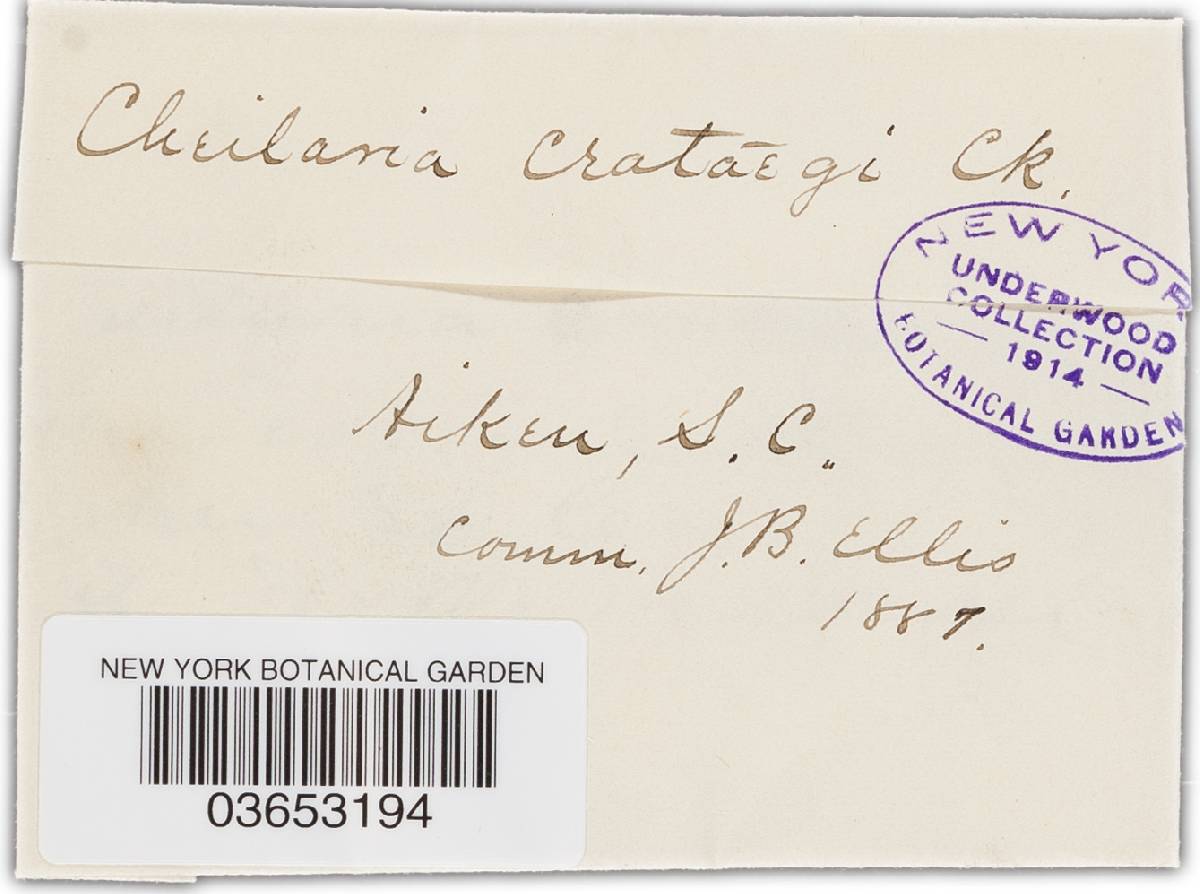 Cheilaria crataegi Ck.
NEW YOR
UNDERWOOD
COLLECTION
1914
BOTANICAL GARDEN
Aiken, S. C.
Comm. J.B. Ellis
1887.
NEW YORK BOTANICAL GARDEN
03653194